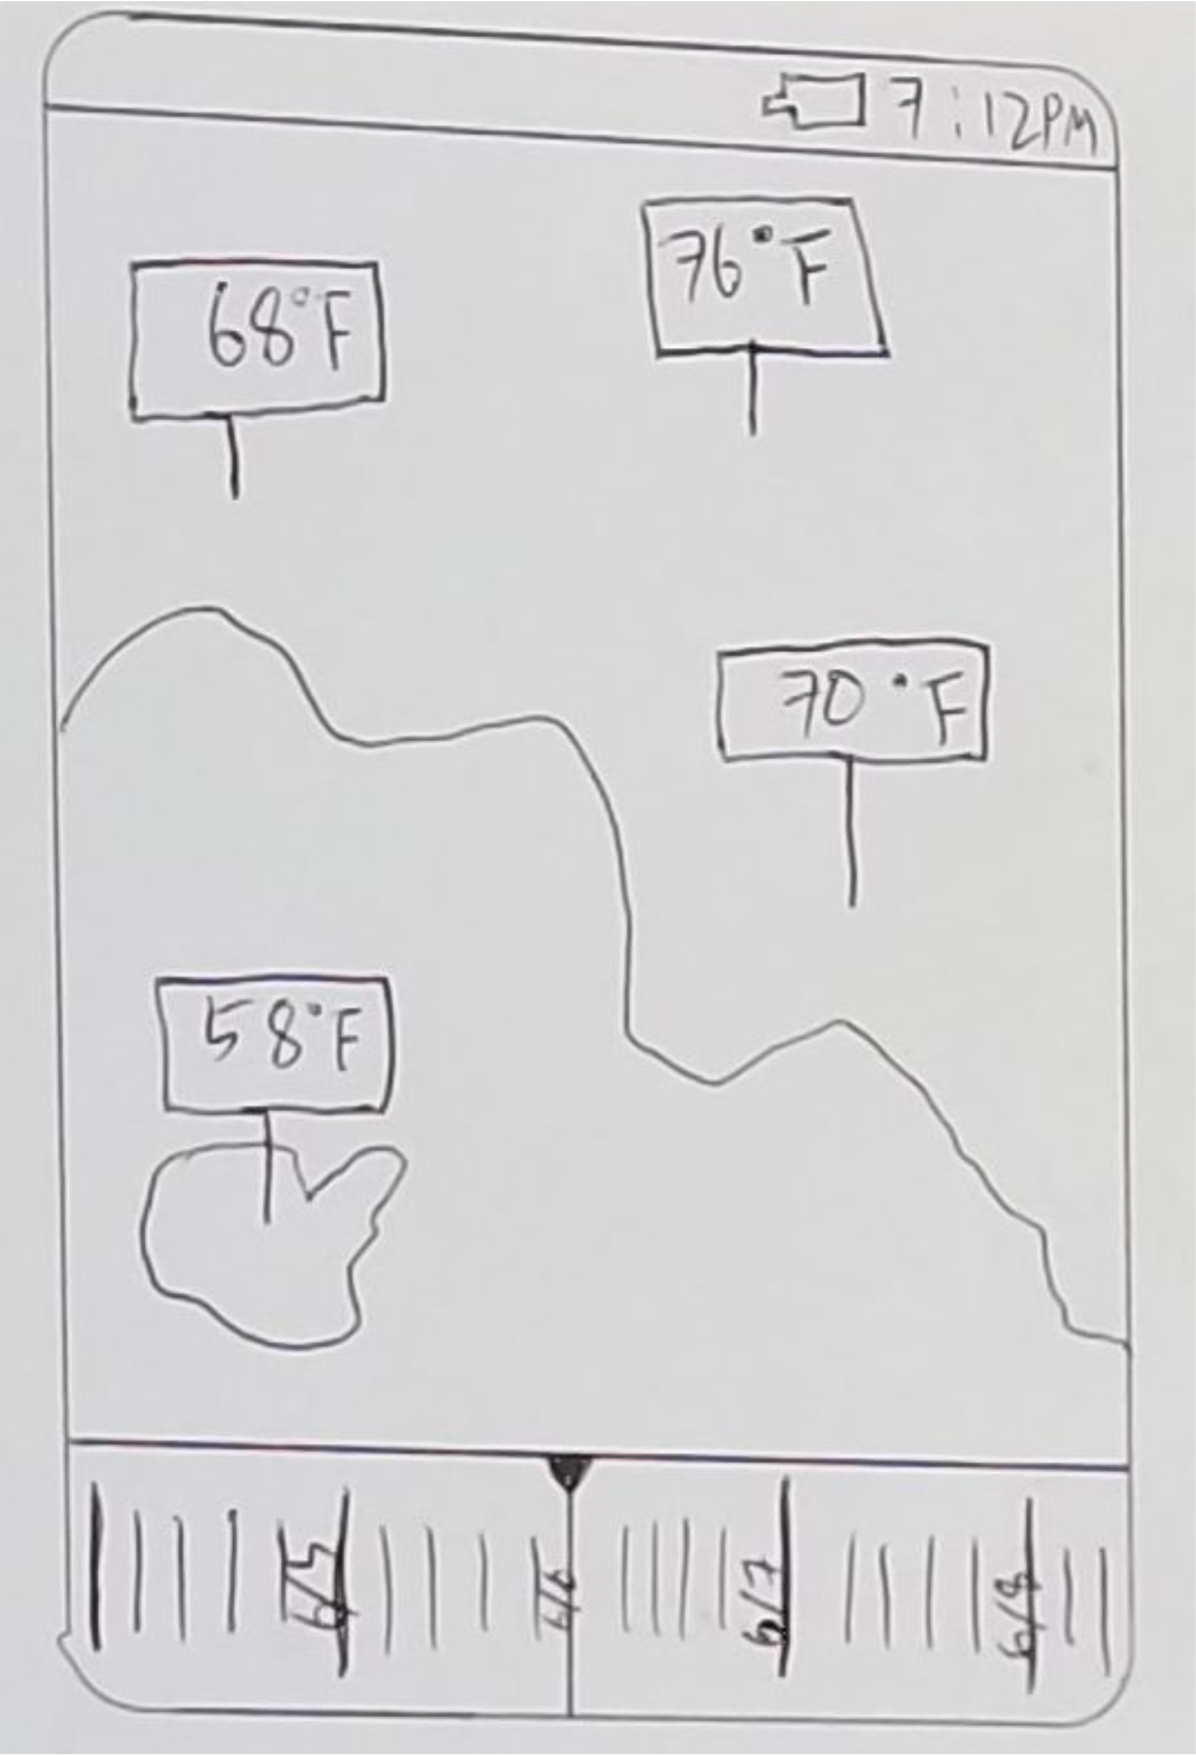 7:12PM
76°F
68°F
70°F
58°F
6/5
6/6
6/7
6/8